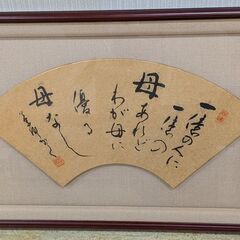 一億の人に
一億の
母あれど
わが母に
優る
母なし